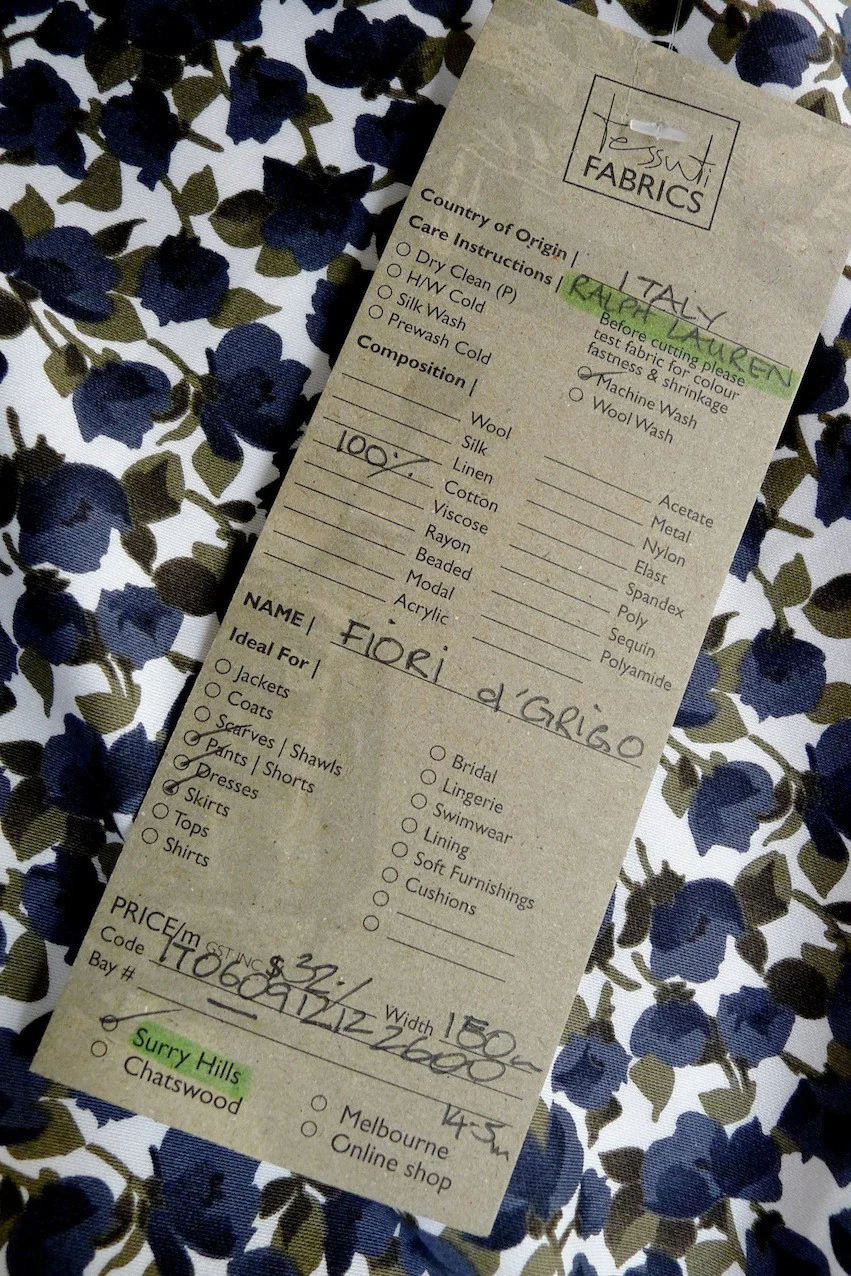 tessuti
FABRICS
Country of Origin | ITALY
Care Instructions | RALPH LAUREN
Dry Clean (P)
H/W Cold
Silk Wash
Prewash Cold
Before cutting please
test fabric for colour
fastness & shrinkage
Machine Wash
Wool Wash
Composition |
Wool
Silk
Linen
100% Cotton
Viscose
Rayon
Beaded
Modal
Acrylic
Acetate
Metal
Nylon
Elast
Spandex
Poly
Sequin
Polyamide
NAME | FIORI d'GRIGO
Ideal For |
Jackets
Coats
Scarves | Shawls
Pants | Shorts
Dresses
Skirts
Tops
Shirts
Bridal
Lingerie
Swimwear
Lining
Soft Furnishings
Cushions
PRICE/m GST INC $32./ Width 150cm
Code 1T06091212 2600
Bay #
14.5m
Surry Hills
Chatswood
Melbourne
Online shop